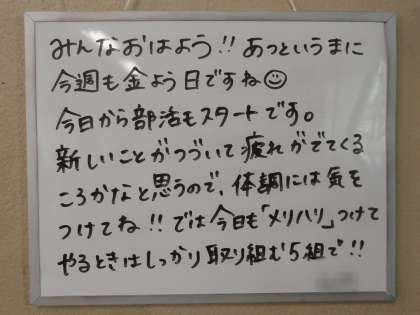 みんなおはよう!! あっというまに
今週も金よう日ですね☺
今日から部活もスタートです。
新しいことがつづいて疲れがでてくる
ころかなと思うので、体調には気を
つけてね!! では今日も「メリハリ」つけて
やるときはしっかり取り組む5組で!!